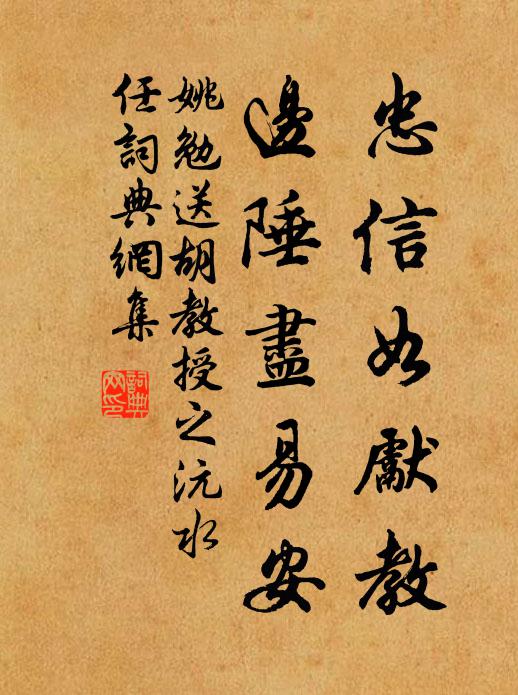 忠信如獻教
邊陲盡易安
姚勉送胡教授之沅水
任詞典網集
詞典網印